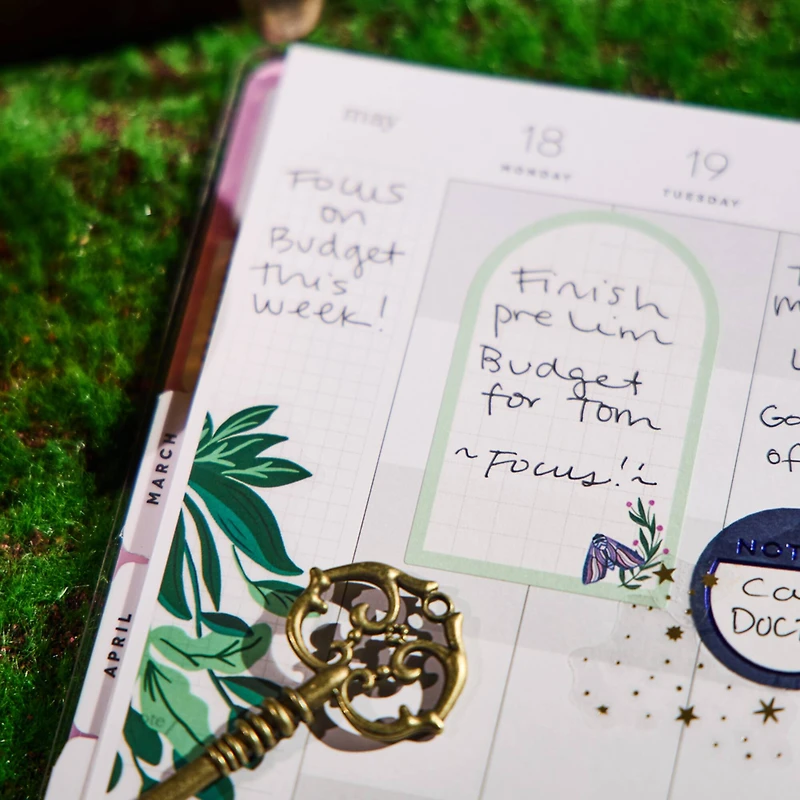 may
18
MONDAY
19
TUESDAY
Focus
on
Budget
this
week!
Finish
prelim
Budget
for Tom
~Focus!~
of
MARCH
APRIL